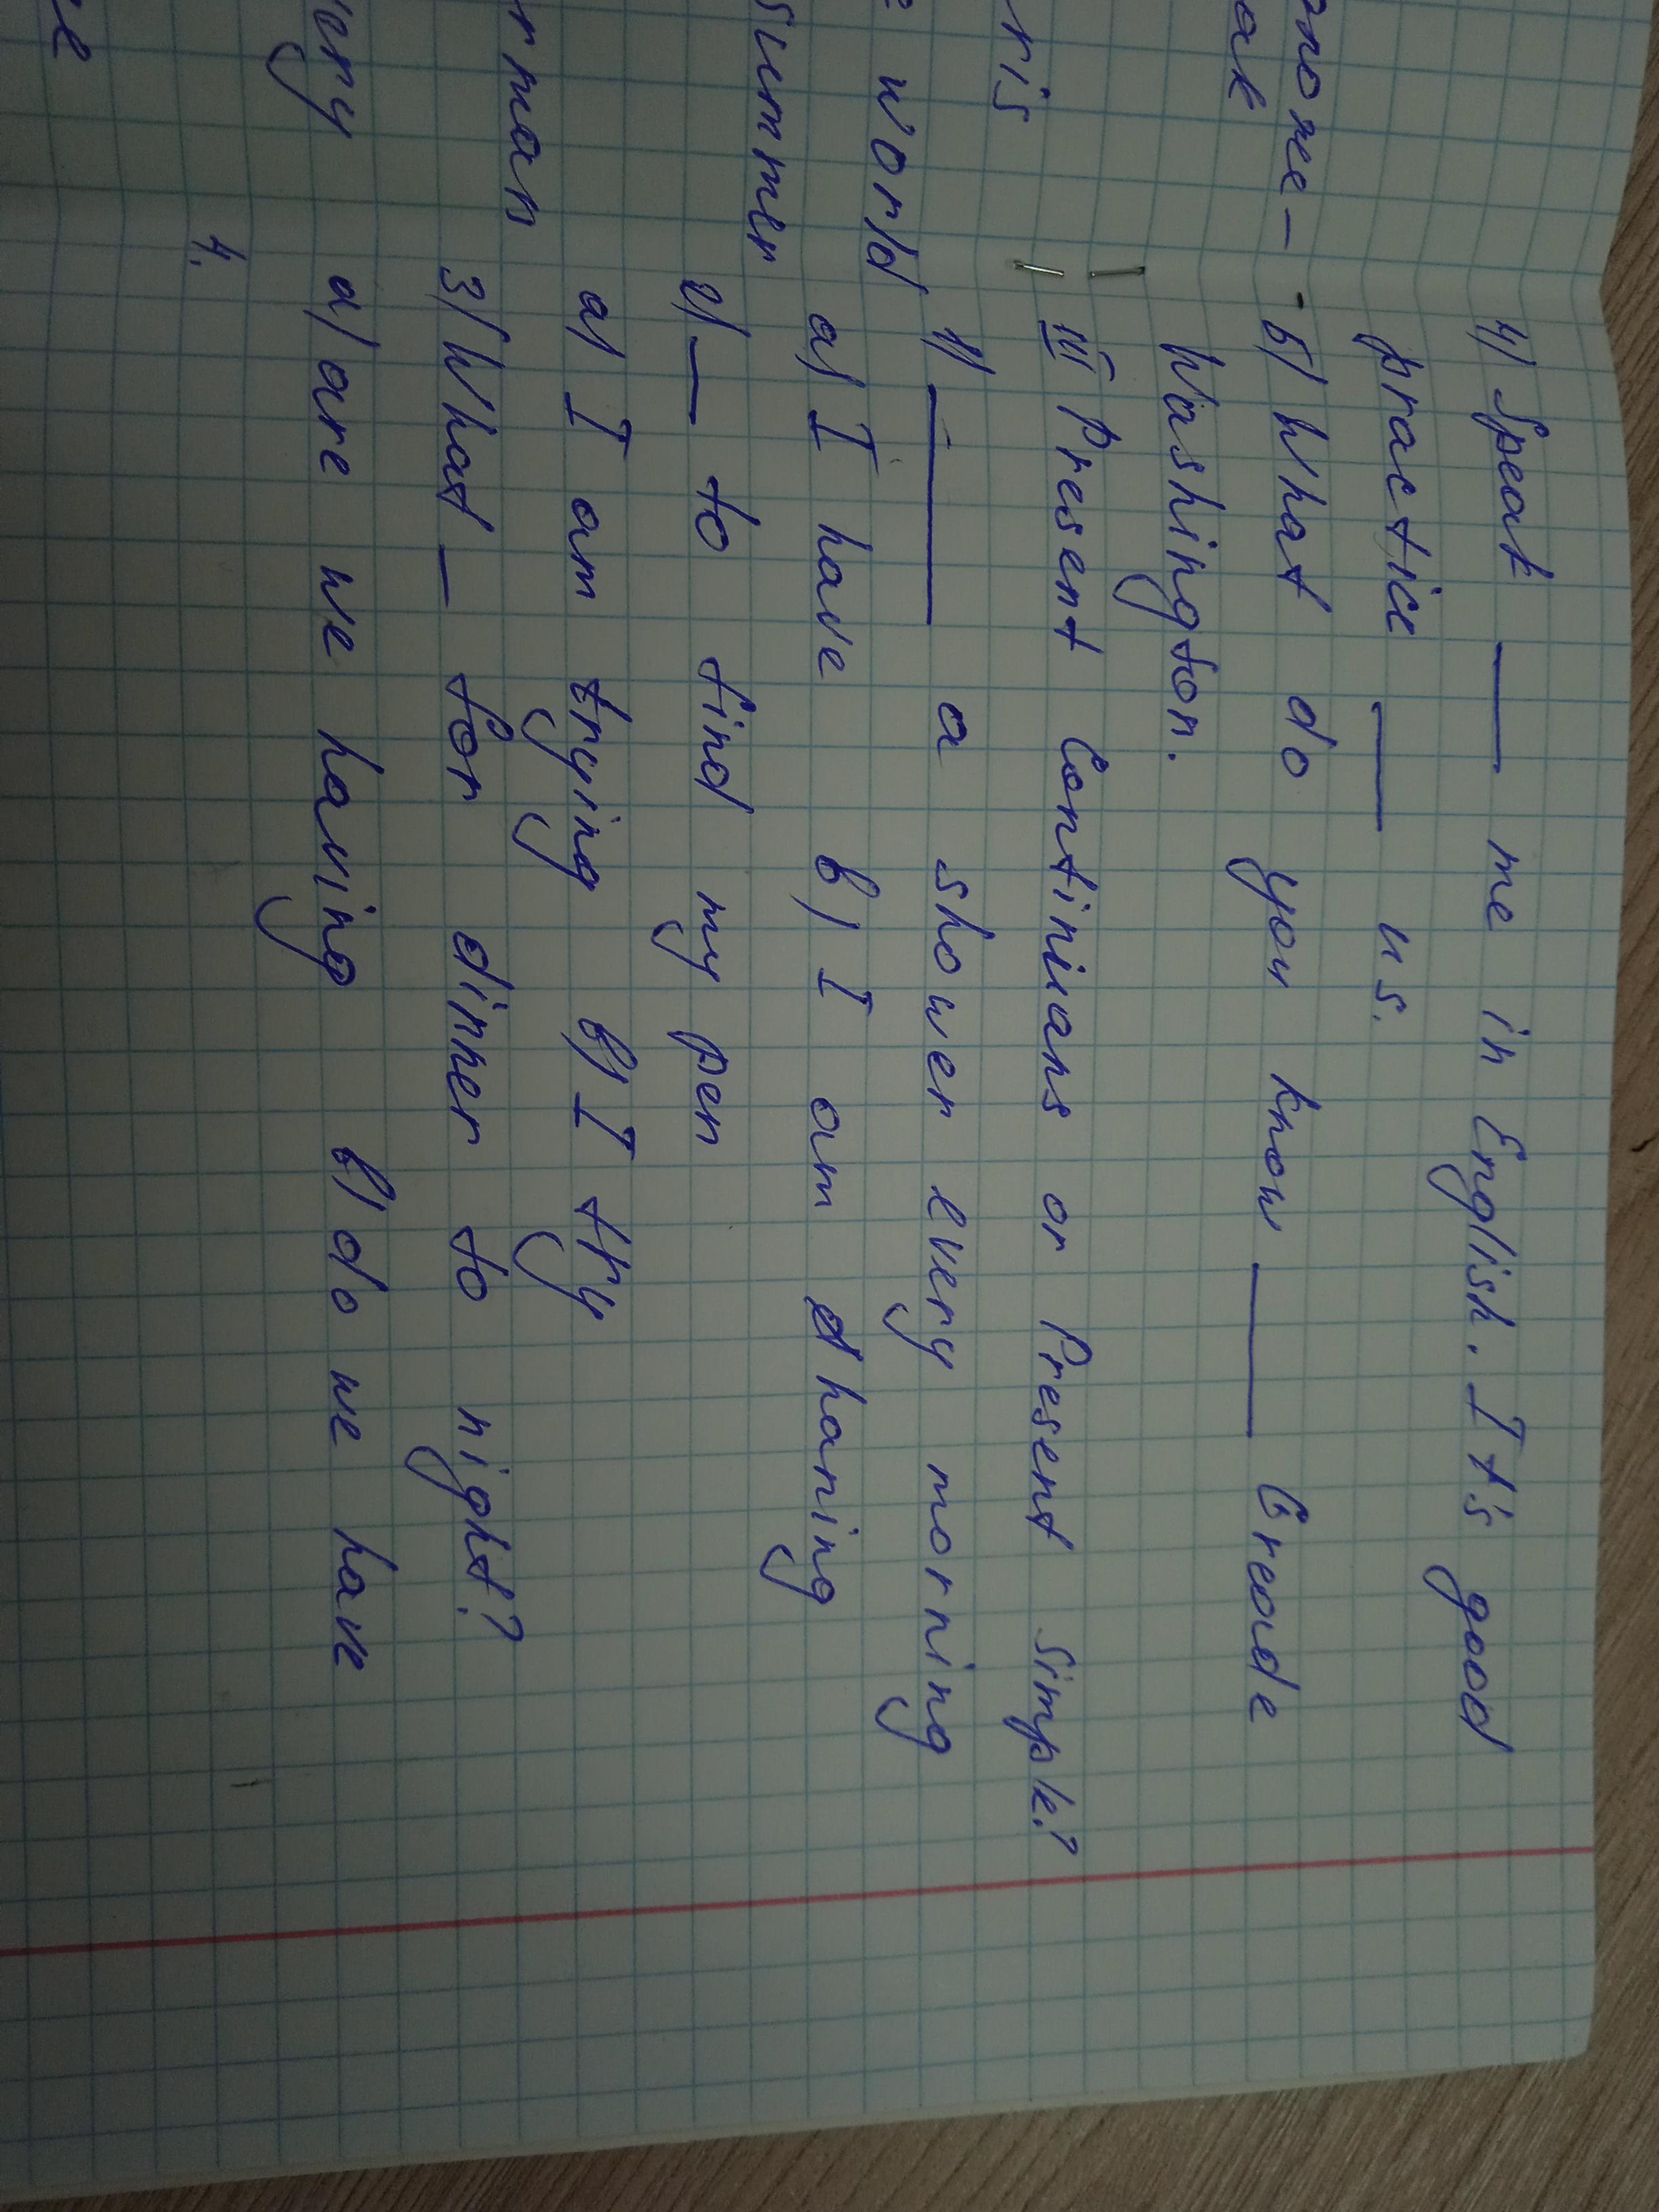 попе-
ak
ris
e world
summer
rman
very
ce
4) Speak ___ me in English. It's good
practice ___ us.
5) What do you know ___ Greade
Washington.
III Present Continians or Present Simple?
1) ___ a shower every morning
a) I have b) I am haning
2) ___ to find my pen
a) I am trying b) I try
3) What ___ for dinner to night?
a) are we having b) do we have
4.